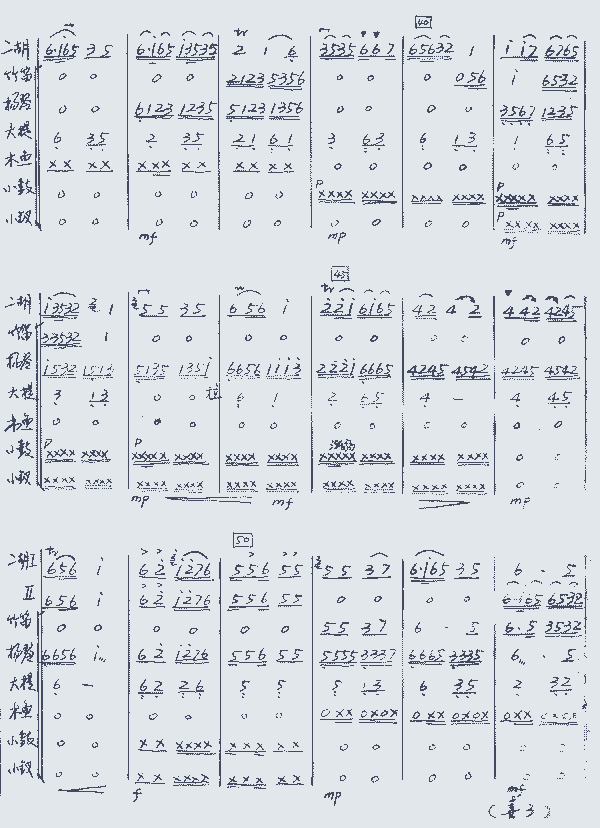 40
二胡 6·165 35 | 6·165 13535 | 2 1 6 | 3535 667 | 65632 1 | 1 17 6765
竹笛 0 0 | 0 0 | 2123 5356 | 0 0 | 0 056 | 1 6532
扬琴 0 0 | 6123 1235 | 5123 1356 | 0 0 | 0 0 | 3567 1235
大提 6 35 | 2 35 | 21 61 | 3 63 | 6 13 | 1 65
木鱼 xx xx | xxx xx | xx xx | 0 0 | 0 0 | 0 0
小鼓 0 0 | 0 0 | 0 0 | xxxx xxxx | xxxx xxxx | xxxxx xxxx
小钗 0 0 | 0 0 | 0 0 | 0 0 | 0 0 | xxxx xxxx
mf mp mf
45
二胡 13532 1 | 55 35 | 656 1 | 221 6165 | 42 42 | 442 4245
竹笛 33532 1 | 0 0 | 0 0 | 0 0 | 0 0 | 0 0
扬琴 1532 1513 | 5135 1351 | 6656 1113 | 2221 6665 | 4245 4542 | 4245 4542
大提 3 13 | 0 0 | 6 1 | 2 65 | 4 - | 4 45
木鱼 0 0 | 0 0 | 0 0 | 0 0 | 0 0 | 0 0
小鼓 xxxx xxxx | xxxx xxxx | xxxx xxxx | xxxxx xxxx | xxxx xxxx | 0 0
小钗 xxxx xxxx | xxxx xxxx | xxxx xxxx | xxxx xxxx | xxxx xxxx | 0 0
mp mf mp
50
二胡I 656 1 | 62 1276 | 556 55 | 55 37 | 6·165 35 | 6 · 5
II 656 1 | 62 1276 | 556 55 | 0 0 | 0 0 | 6·165 6532
竹笛 0 0 | 0 0 | 0 0 | 55 37 | 6 · 5 | 6·5 3532
扬琴 6656 1 | 62 1276 | 556 55 | 5555 3337 | 6665 3335 | 6 · 5
大提 6 - | 62 26 | 5 5 | 5 13 | 6 35 | 2 32
木鱼 0 0 | 0 0 | 0 0 | 0xx 0x0x | 0xx 0x0x | 0xx 0x0x
小鼓 0 0 | xx xxxx | xxx xx | 0 0 | 0 0 | 0 0
小钗 0 0 | xx xxxx | xxx xx | 0 0 | 0 0 | 0 0
f mp mf
(喜3)